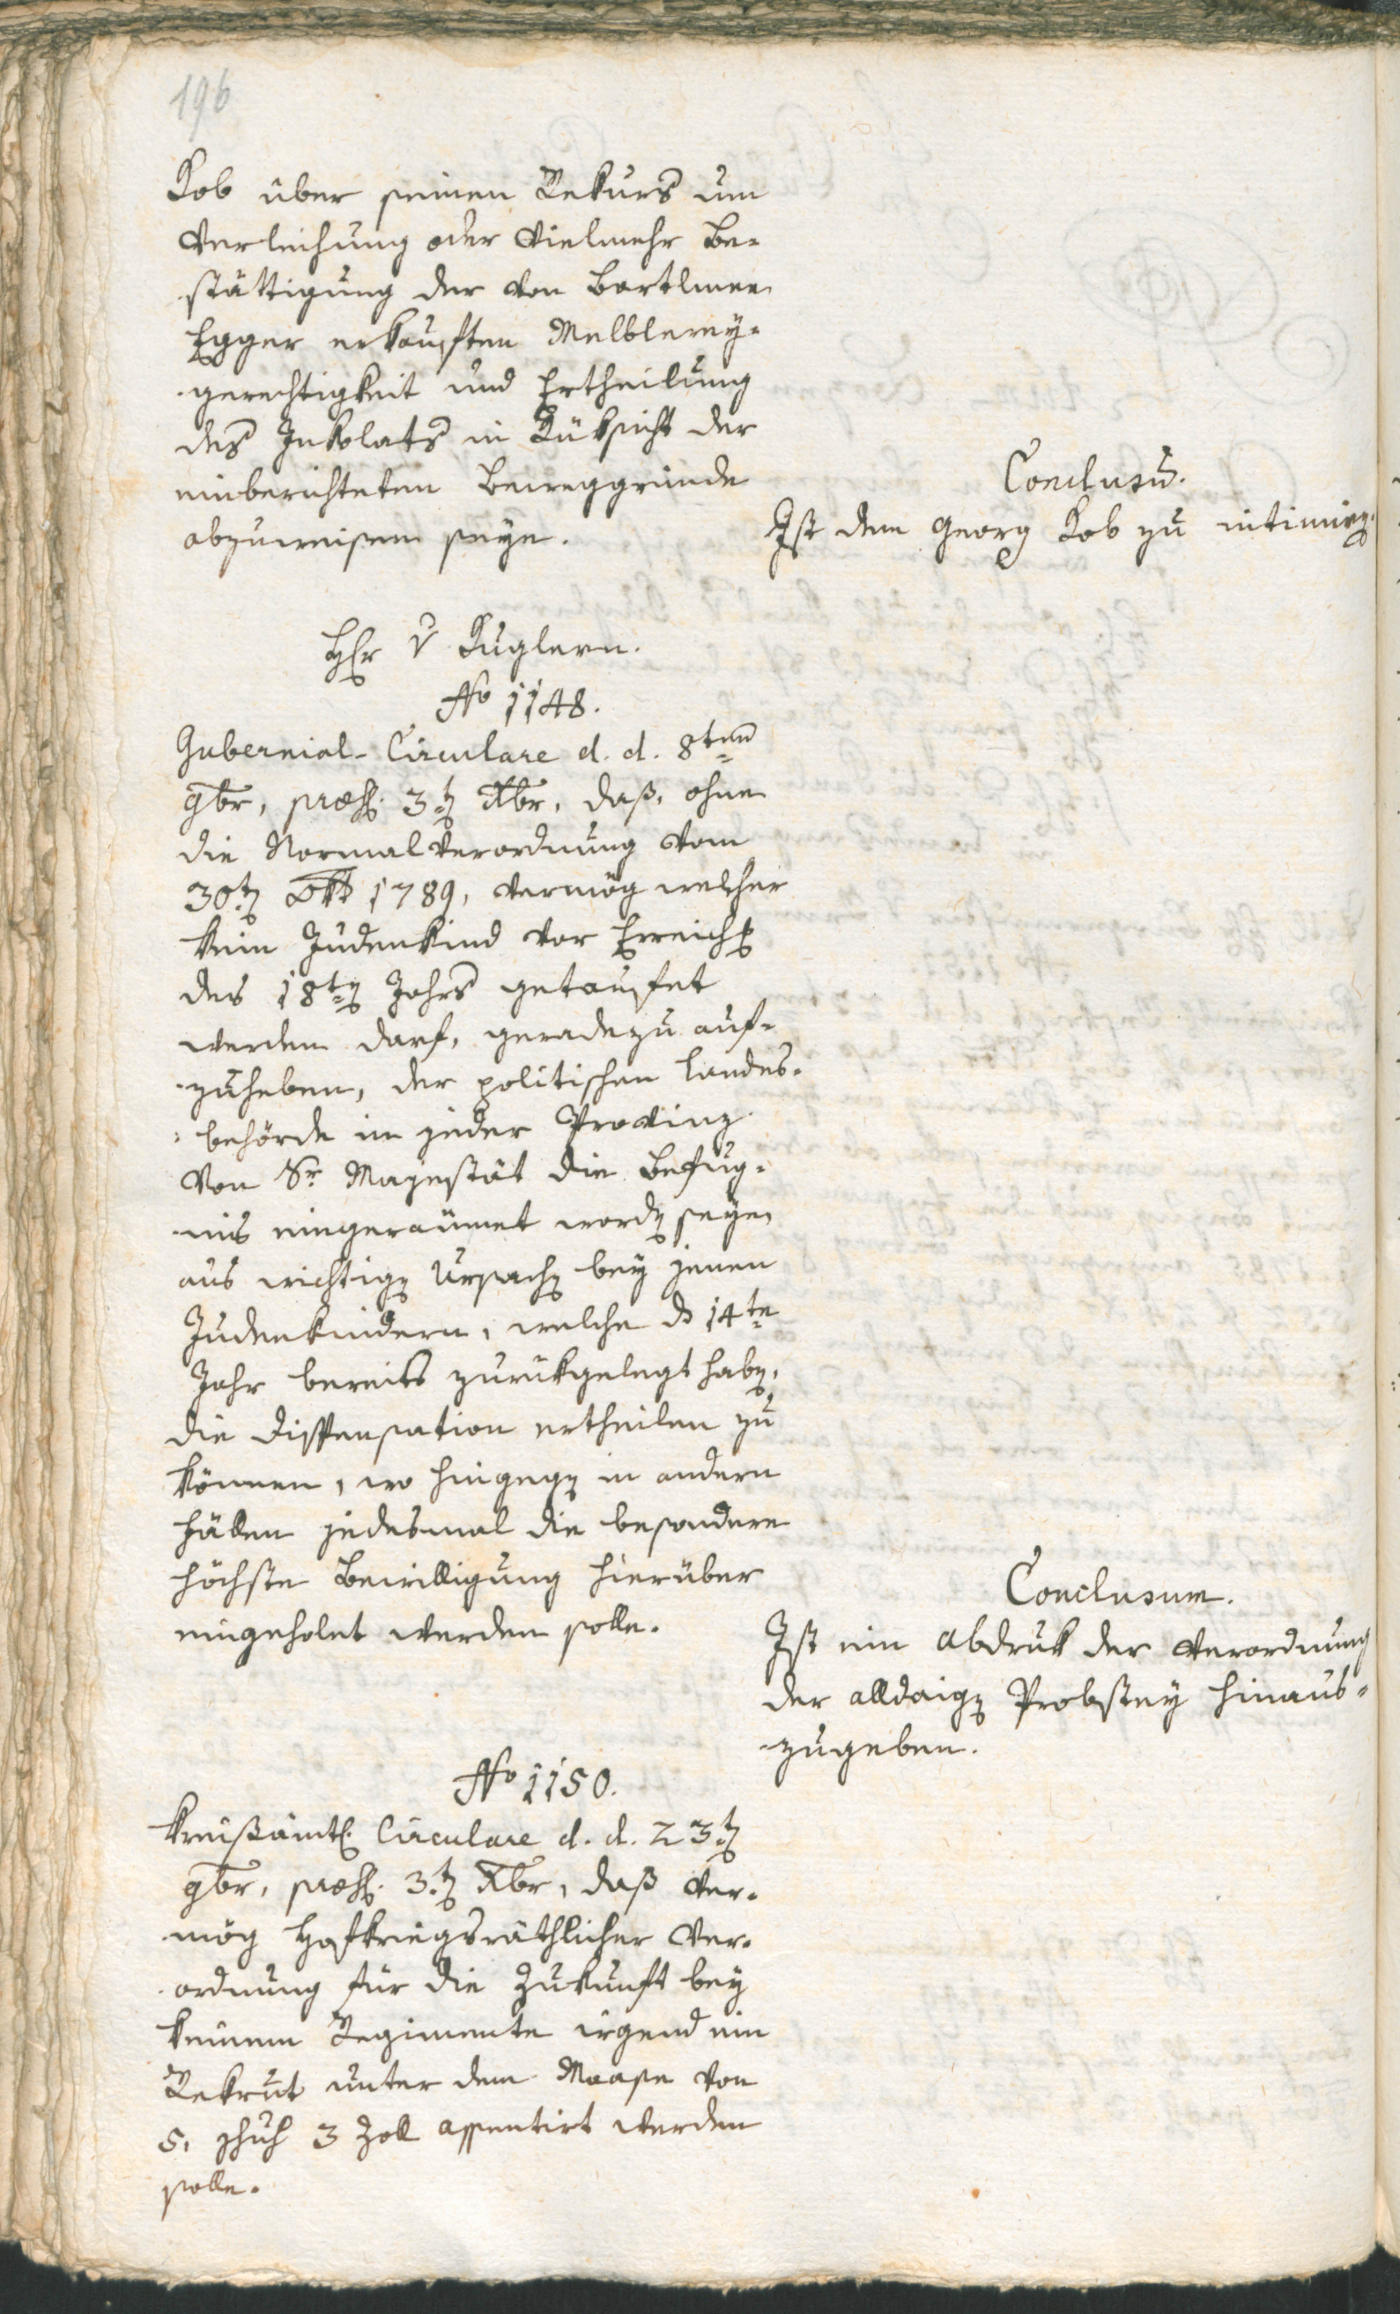 196
Kob über seinen Rekurs um
Verleihung oder vielmehr Be-
stättigung der von Bartlmee
Egger erkauften Melblerey-
gerechtigkeit und Ertheilung
des Inkolats in Rüksicht der
einberichteten Beweggründe
abzuweisen seye.
Conclusū.
Ist dem Georg Kob zu intimirn.
Hr v Kuglern.
No 1148.
Gubernial-Circulare d. d. 8ten
9br, præs. 3tn Xbr, daß, ohne
die Normalverordnung vom
30tn Okt 1789, vermög welcher
kein Judenkind vor Erreichg
des 18tn Jahrs getaufet
werden darf, geradezu auf-
zuheben, der politischen Landes-
behörde in jeder Provinz
von Sr Majestät die Befug-
nis eingeraumet wordn seye,
aus wichtign Ursachn bey jenen
Judenkindern, welche ds 14te
Jahr bereits zurükgelegt habn,
die Dispensation ertheilen zu
können, wo hingegn in andern
Fällen jedesmal die besondere
höchste Bewilligung hierüber
eingeholet werden solle.
Conclusum.
Ist ein Abdruk der Verordnung
der alldaign Probstey hinaus-
zugeben.
No 1150.
Kreisämtl. Circulare d. d. 23tn
9br, præs. 3tn Xbr, daß ver-
mög Hofkriegsräthlicher Ver-
ordnung für die Zukunft bey
keinem Regimente irgend ein
Rekrut unter dem Maase von
5, Schuh 3 Zoll assentirt werden
solle.